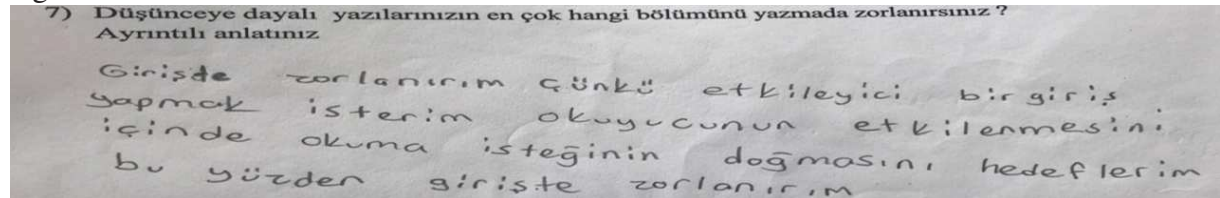 7) Düşünceye dayalı yazılarınızın en çok hangi bölümünü yazmada zorlanırsınız ?
Ayrıntılı anlatınız
Girişde zorlanırım çünkü etkileyici bir giriş
yapmak isterim okuyucunun etkilenmesini
içinde okuma isteğinin doğmasını hedeflerim
bu yüzden girişte zorlanırım